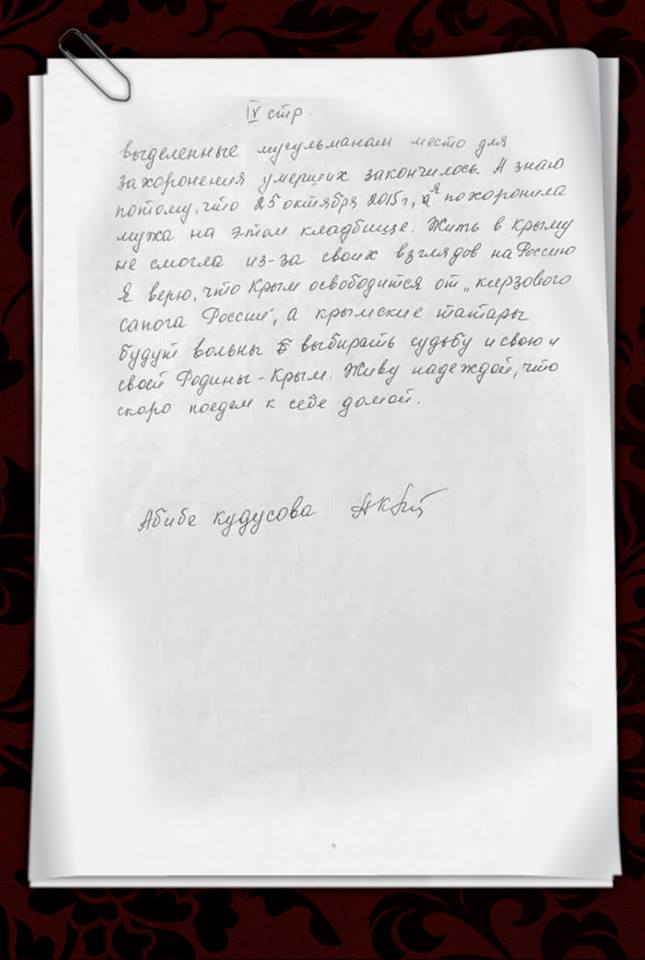 IV стр.
выделенные мусульманам место для
захоронения умерших закончилось. Я знаю
потому, что 25 октября 2015г, я похоронила
мужа на этом кладбище. Жить в Крыму
не смогла из-за своих взглядов на Россию
Я верю, что Крым освободится от „кирзового
сапога России", а крымские татары
будут вольны выбирать судьбу и свою и
своей Родины - Крым. Живу надеждой, что
скоро поедем к себе домой.
Абибе Кудусова